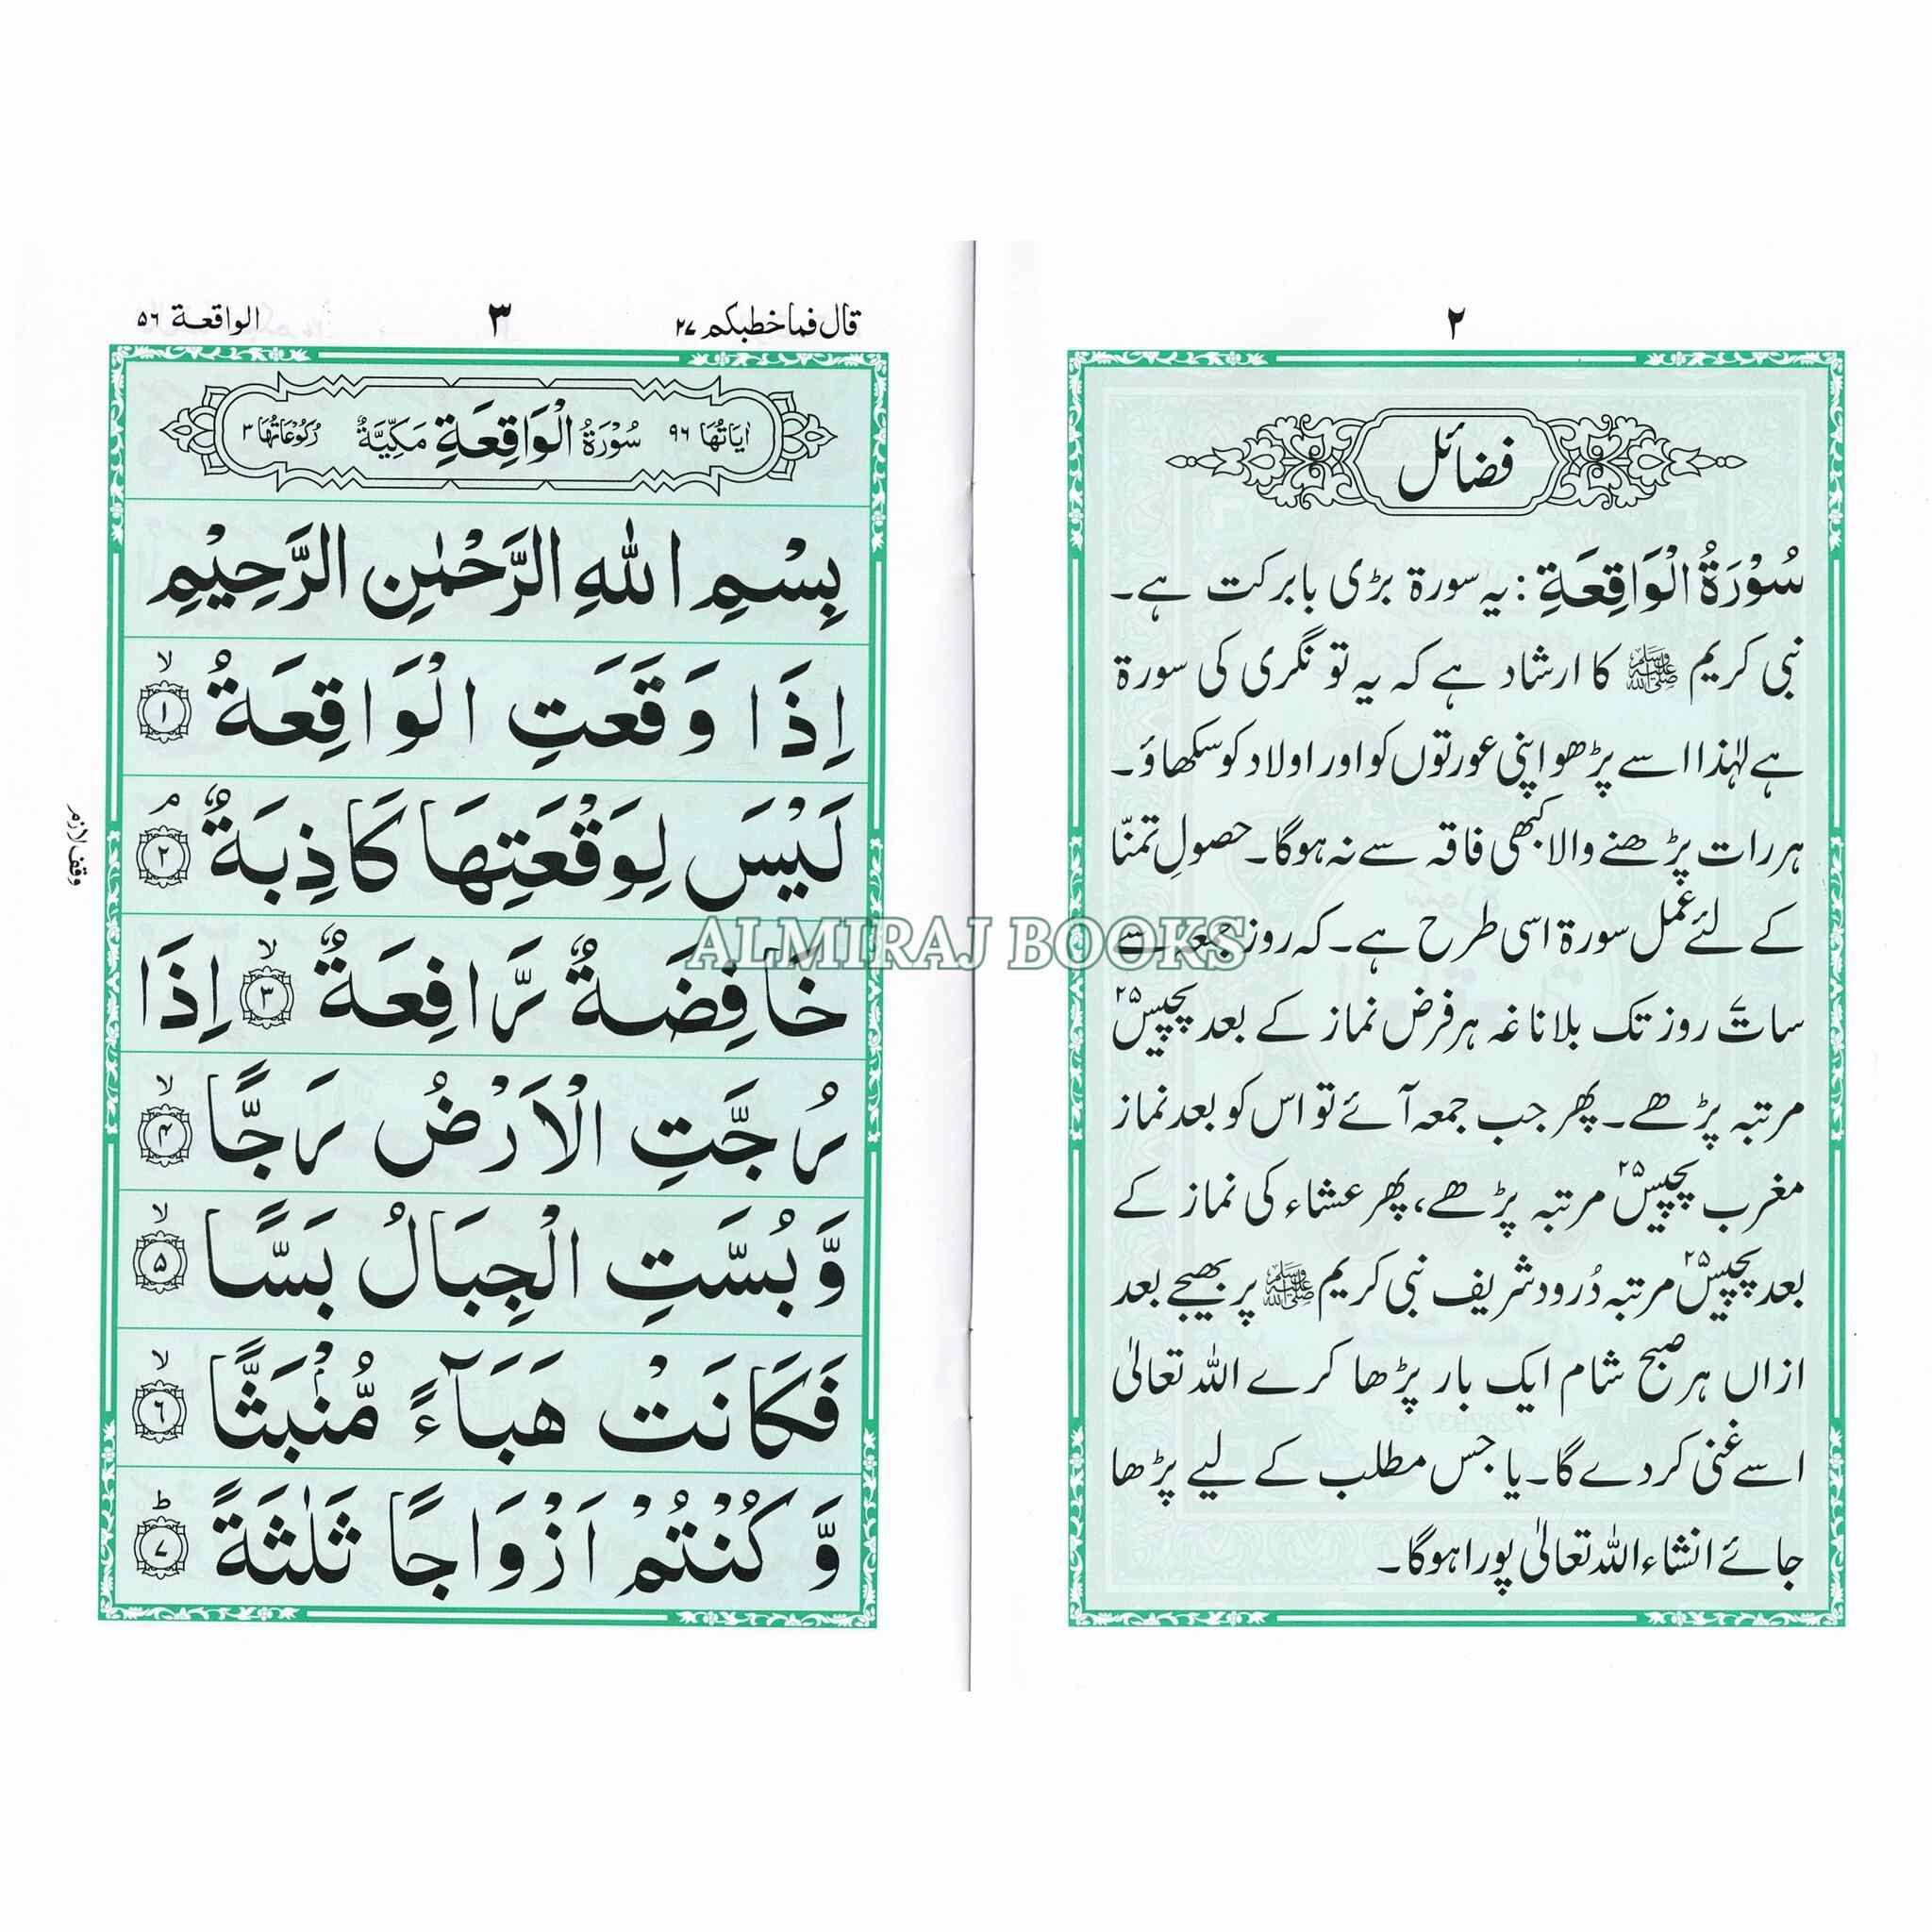 ۲
فضائل
سُوْرَةُ الْوَاقِعَةِ : یہ سورۃ بڑی بابرکت ہے۔
نبی کریم ﷺ کا ارشاد ہے کہ یہ تونگری کی سورۃ
ہے لہٰذا اسے پڑھو اپنی عورتوں کو اور اولاد کو سکھاؤ۔
ہر رات پڑھنے والا کبھی فاقہ سے نہ ہوگا۔ حصولِ تمنّا
کے لئے عمل سورۃ اسی طرح ہے۔ کہ روز جمعہ سے
سات۷ روز تک بلاناغہ ہر فرض نماز کے بعد پچیس۲۵
مرتبہ پڑھے۔ پھر جب جمعہ آئے تو اس کو بعد نماز
مغرب پچیس۲۵ مرتبہ پڑھے، پھر عشاء کی نماز کے
بعد پچیس۲۵ مرتبہ دُرود شریف نبی کریم ﷺ پر بھیجے بعد
ازاں ہر صبح شام ایک بار پڑھا کرے اللہ تعالیٰ
اسے غنی کر دے گا۔ یا جس مطلب کے لیے پڑھا
جائے انشاء اللہ تعالیٰ پورا ہوگا۔
قال فما خطبکم ۲۷ ۳ الواقعة ۵۶
اٰيَاتُهَا ۹۶ سُوْرَةُ الْوَاقِعَةِ مَكِّيَّةٌ رُكُوْعَاتُهَا ۳
بِسْمِ اللهِ الرَّحْمٰنِ الرَّحِيْمِ
اِذَا وَقَعَتِ الْوَاقِعَةُ ۙ ۱
لَيْسَ لِوَقْعَتِهَا كَاذِبَةٌ ۘ ۲
وقف لازم
خَافِضَةٌ رَّافِعَةٌ ۙ ۳ اِذَا
رُجَّتِ الْاَرْضُ رَجًّا ۙ ۴
وَّبُسَّتِ الْجِبَالُ بَسًّا ۙ ۵
فَكَانَتْ هَبَآءً مُّنْۢبَثًّا ۙ ۶
وَّكُنْتُمْ اَزْوَاجًا ثَلٰثَةً ؕ ۷
ALMIRAJ BOOKS